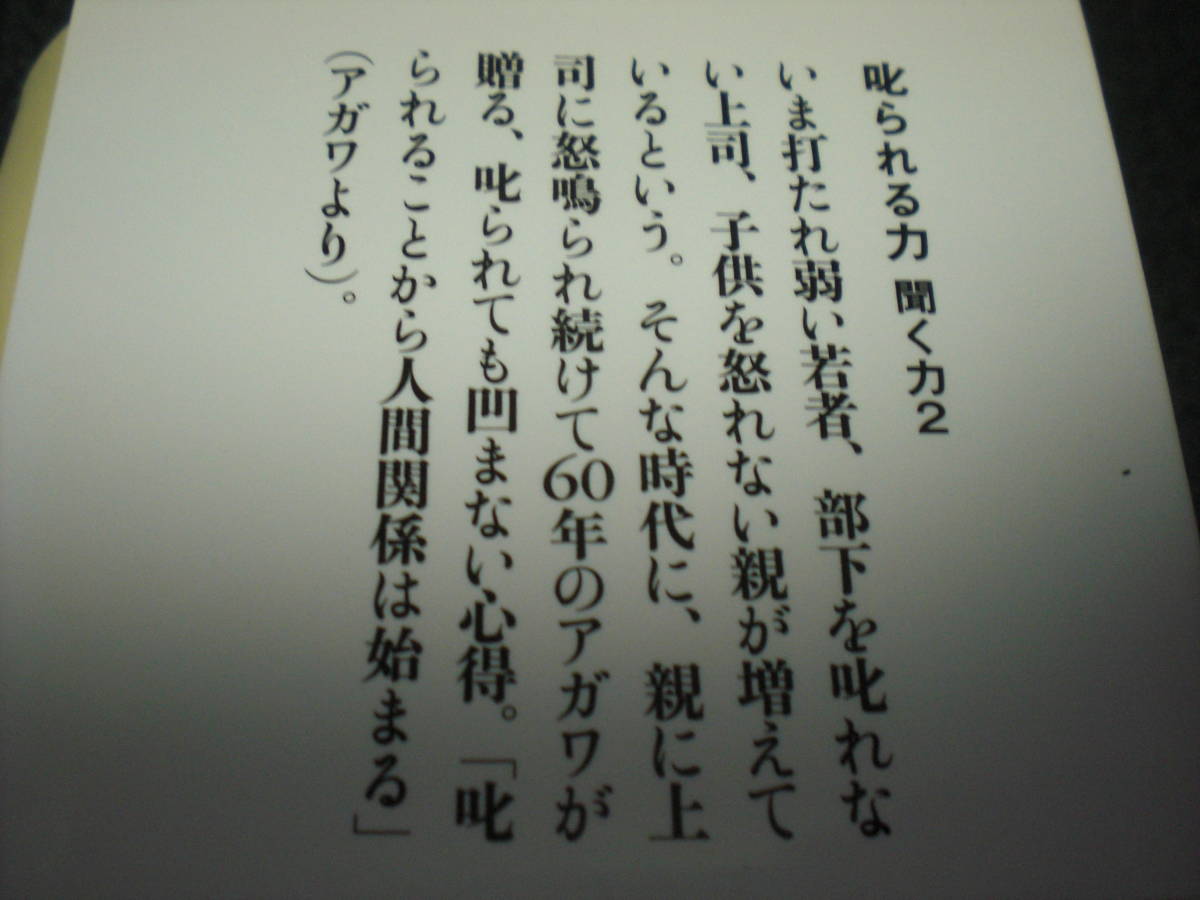 叱られる力 聞く力2
いま打たれ弱い若者、部下を叱れな
い上司、子供を怒れない親が増えて
いるという。そんな時代に、親に上
司に怒鳴られ続けて60年のアガワが
贈る、叱られても凹まない心得。「叱
られることから人間関係は始まる」
（アガワより）。